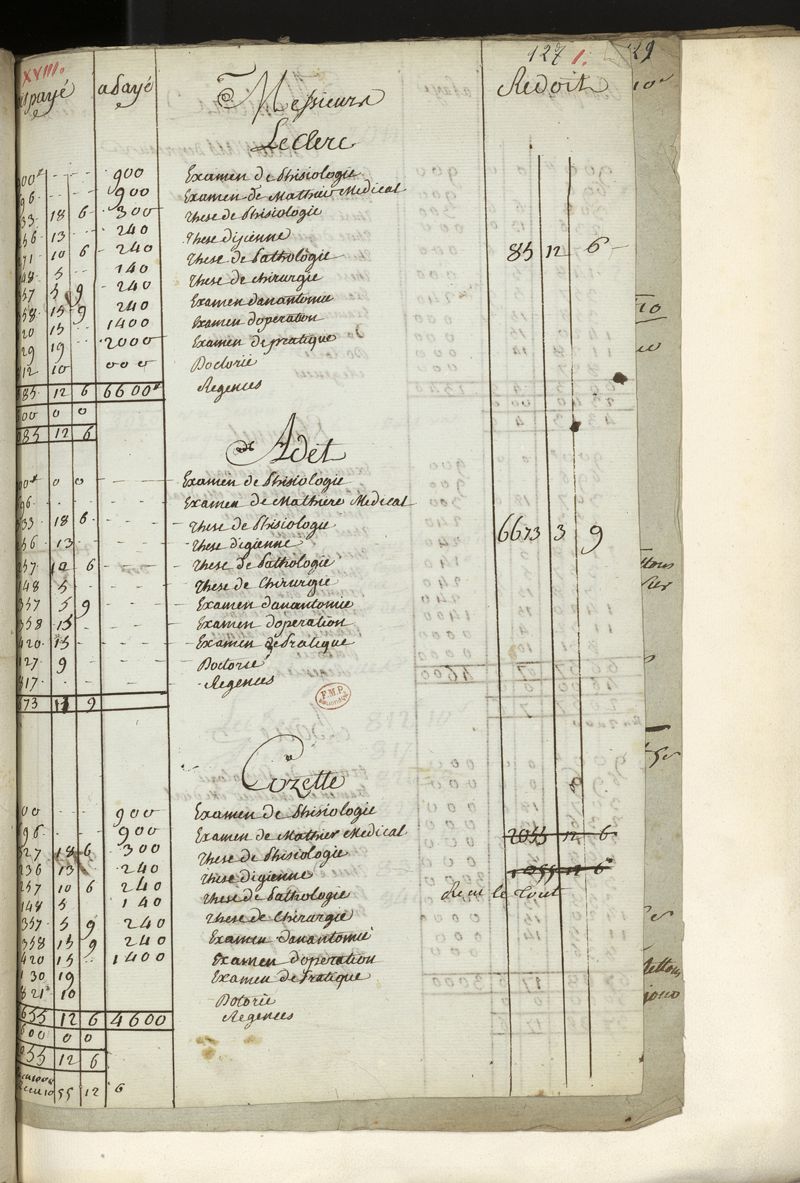 XVIII. 127 1. 29
payé a payé Messieurs Redoit
Leclerc
00 900 Examen de Phisiologie
96 900 Examen de Mathiere Medical
33 18 6 300 these de Phisiologie
256 13 240 these digienne 85 12 6
271 10 6 240 these de Pathologie
148 5 140 these de Chirurgie
357 5 9 240 Examen danantomie
358 15 9 240 Examen doperation
420 15 1400 Examen de pratique
29 19 2000 Doctorie
12 10 000 Regences
685 12 6 6600
600 0 0
085 12 6
Adet
00 0 0 Examen de Phisiologie
96 Examen de Mathiere Medical
333 18 6 these de Phisiologie 6673 3 9
256 13 these digienne
257 10 6 these de Pathologie
148 5 these de Chirurgie
357 5 9 Examen danantomie
358 15 Examen doperation
420 15 Examen de Pratique
127 9 Doctorie
817 Regences
673 13 9
F.M.P.
Cozette
00 900 Examen de Phisiologie
96 900 Examen de Mathier Medical 2055 12 6
327 18 6 300 these de Phisiologie
236 13 240 these digienne 1055 12 6
257 10 6 240 these de Pathologie Recu le tout
148 5 140 these de Chirurgie
357 5 9 240 Examen danantomie
358 15 9 240 Examen doperation
420 15 1400 Examen de Pratique
130 19 Dotorie
821 10 Regences
655 12 6 4600
600 0 0
055 12 6
55 12 6